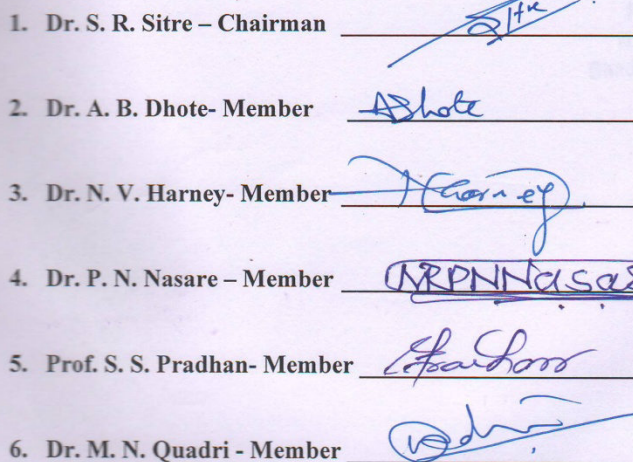 1. Dr. S. R. Sitre – Chairman
2. Dr. A. B. Dhote- Member ABhote
3. Dr. N. V. Harney- Member NHarney
4. Dr. P. N. Nasare – Member
5. Prof. S. S. Pradhan- Member
6. Dr. M. N. Quadri - Member